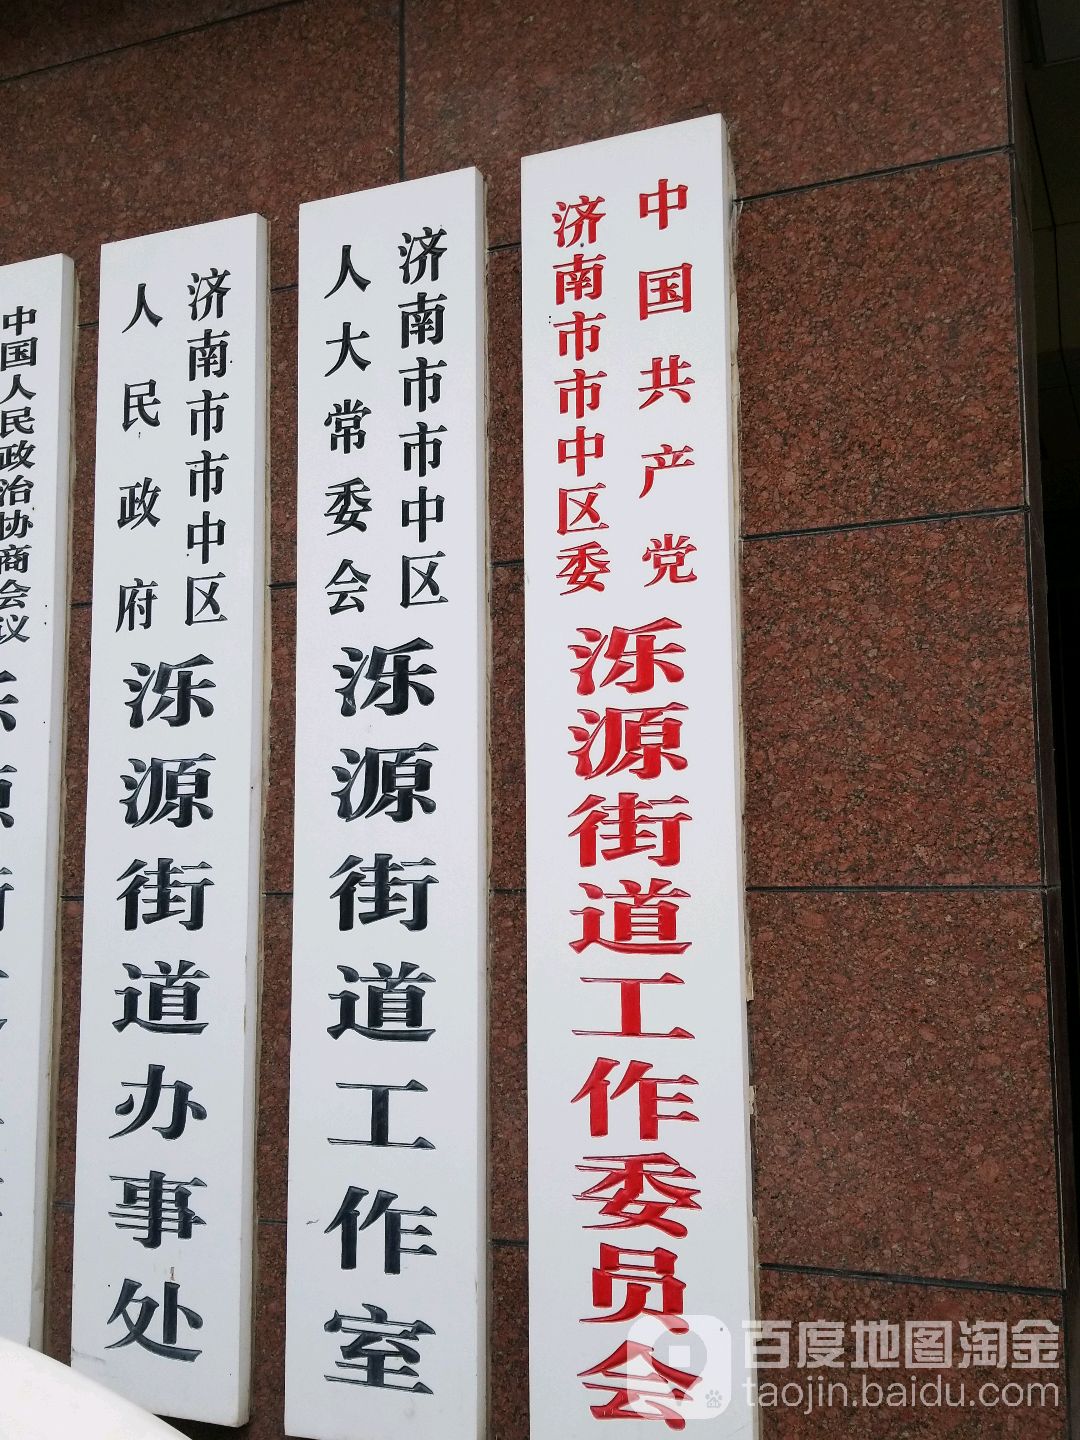 中国共产党
济南市市中区委
泺源街道工作委员会
济南市市中区
人大常委会
泺源街道工作室
济南市市中区
人民政府
泺源街道办事处
中国人民政治协商会议
百度地图淘金
taojin.baidu.com